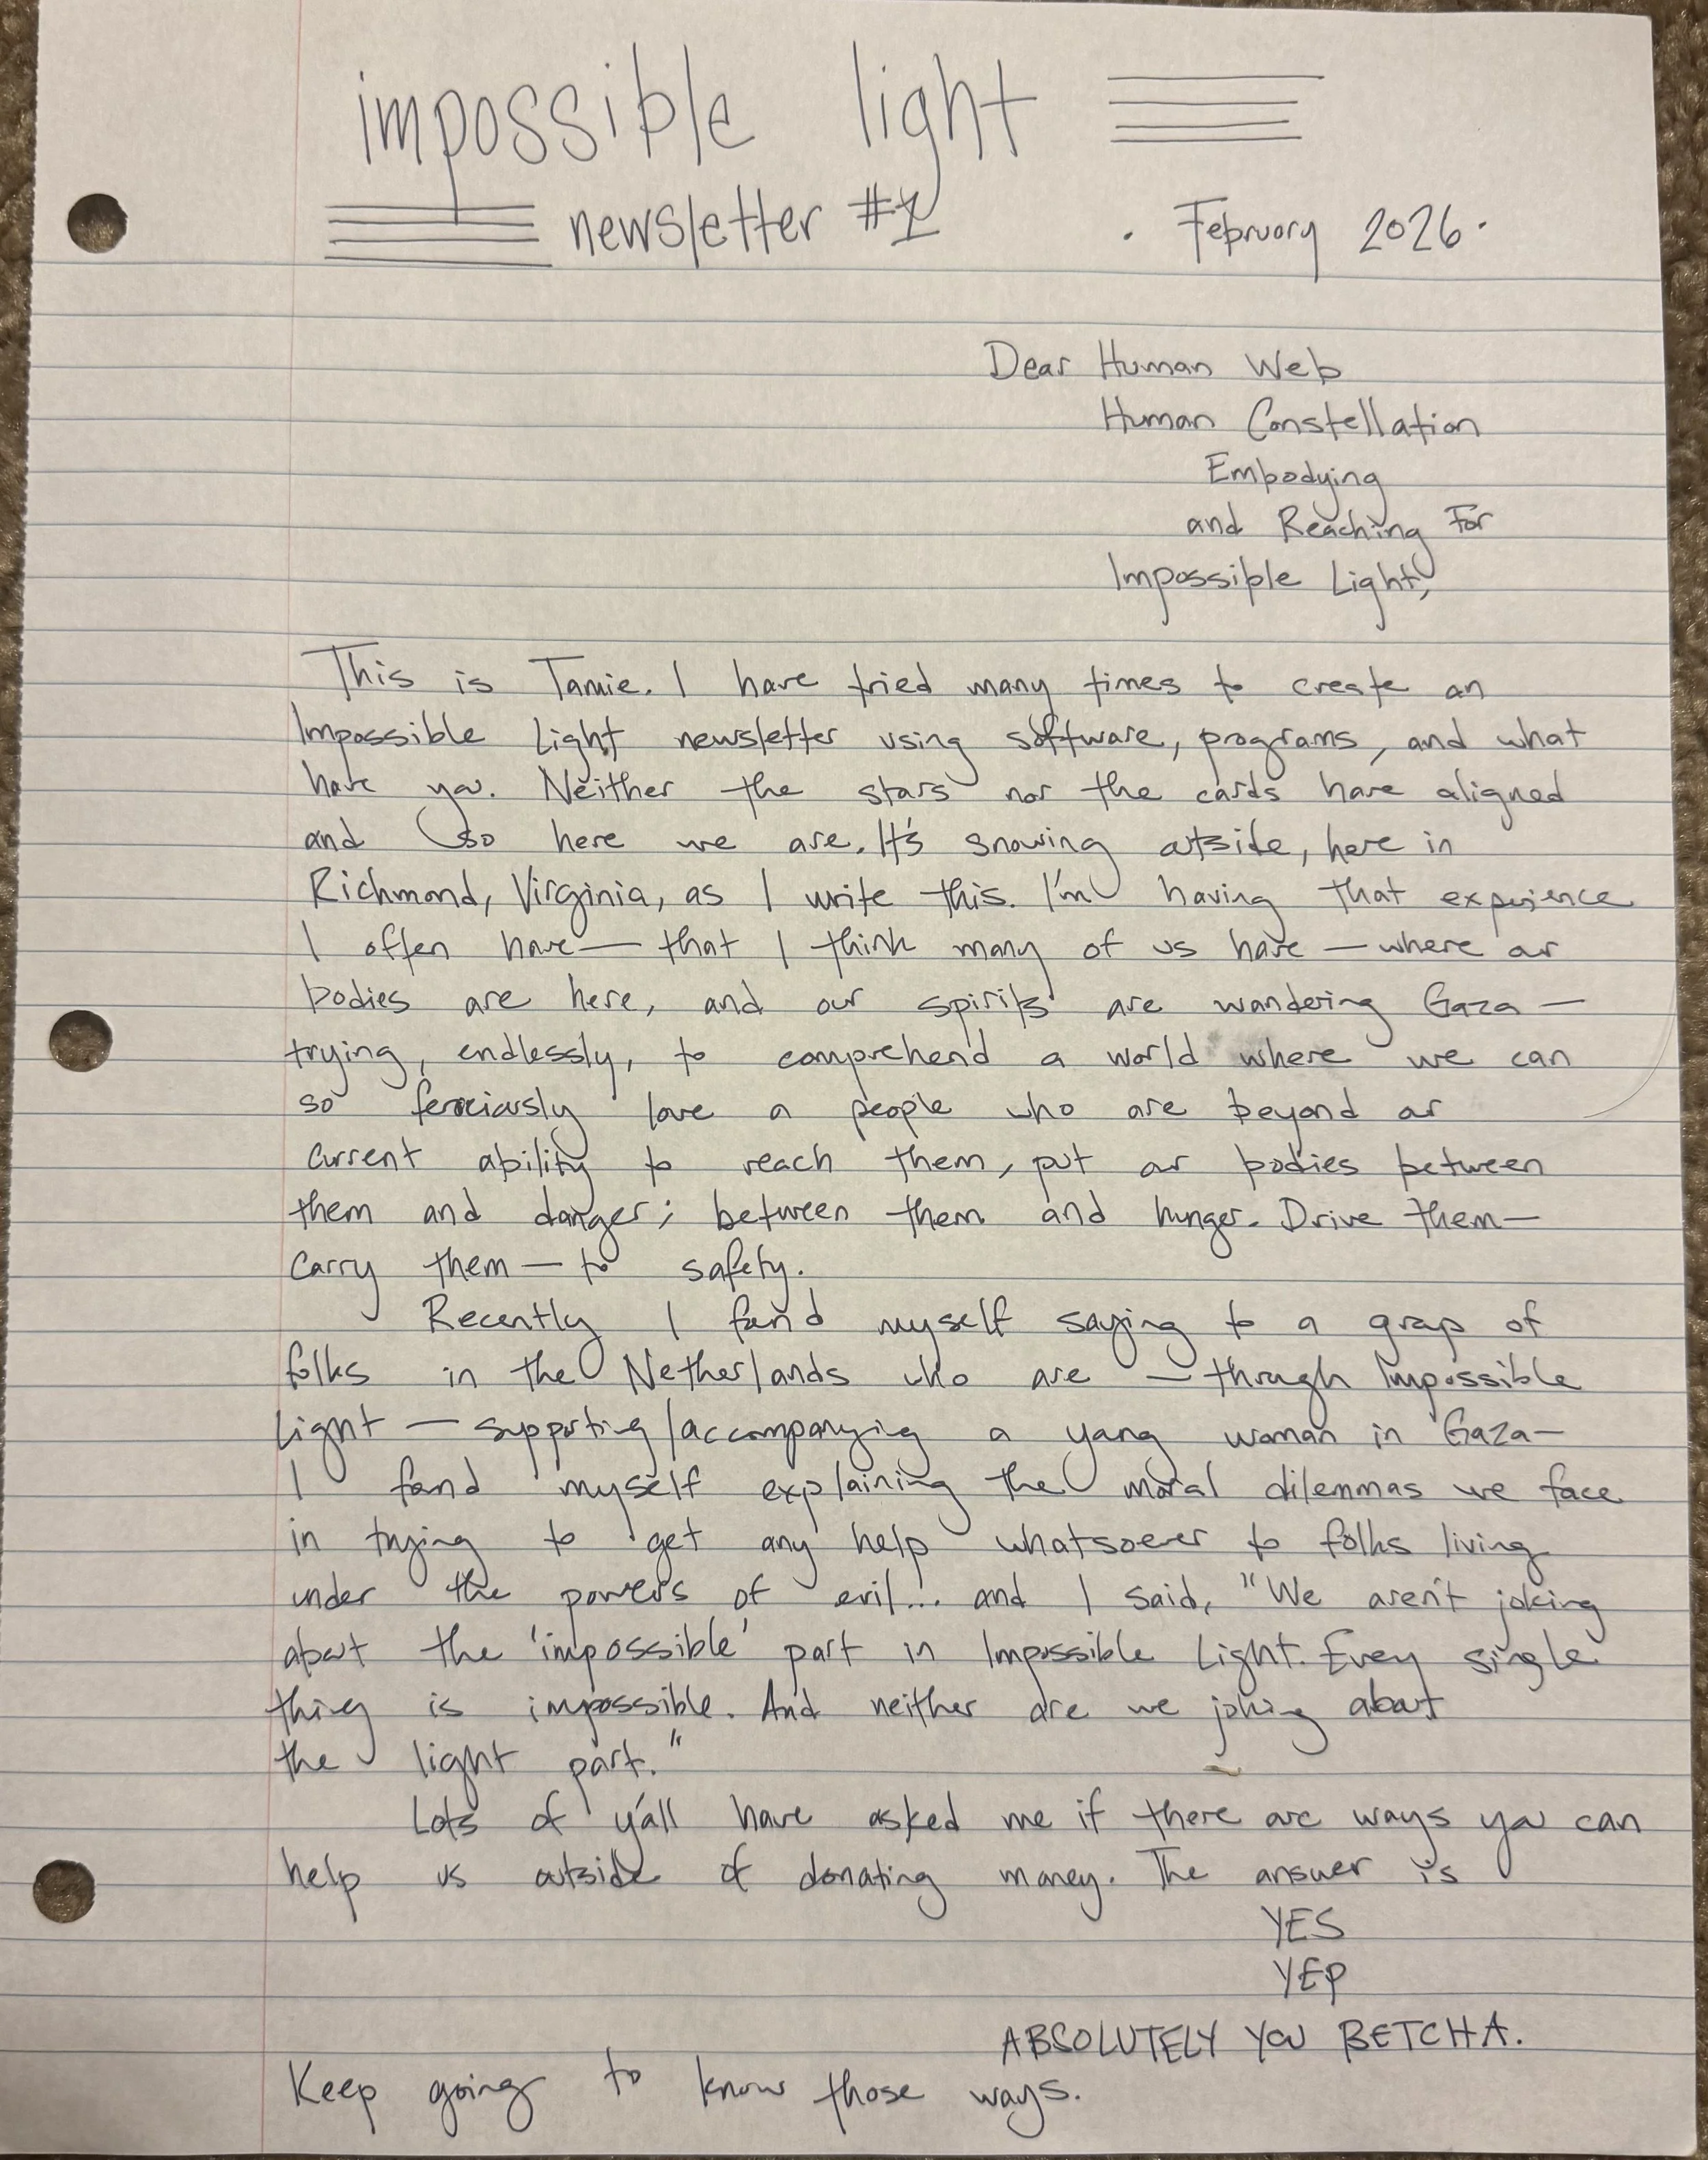 impossible light
newsletter #1 · February 2026 ·
Dear Human Web
Human Constellation
Embodying
and Reaching For
Impossible Light,
This is Tamie. I have tried many times to create an
Impossible Light newsletter using software, programs, and what
have you. Neither the stars nor the cards have aligned
and so here we are. It's snowing outside, here in
Richmond, Virginia, as I write this. I'm having that experience
I often have — that I think many of us have — where our
bodies are here, and our spirits are wandering Gaza —
trying, endlessly, to comprehend a world where we can
so ferociously love a people who are beyond our
current ability to reach them, put our bodies between
them and danger; between them and hunger. Drive them —
carry them — to safety.
Recently I found myself saying to a group of
folks in the Netherlands who are — through Impossible
Light — supporting/accompanying a young woman in Gaza —
I found myself explaining the moral dilemmas we face
in trying to get any help whatsoever to folks living
under the powers of evil... and I said, "We aren't joking
about the 'impossible' part in Impossible Light. Every single
thing is impossible. And neither are we joking about
the light part."
Lots of y'all have asked me if there are ways you can
help us outside of donating money. The answer is
YES
YEP
ABSOLUTELY YOU BETCHA.
Keep going to know those ways.